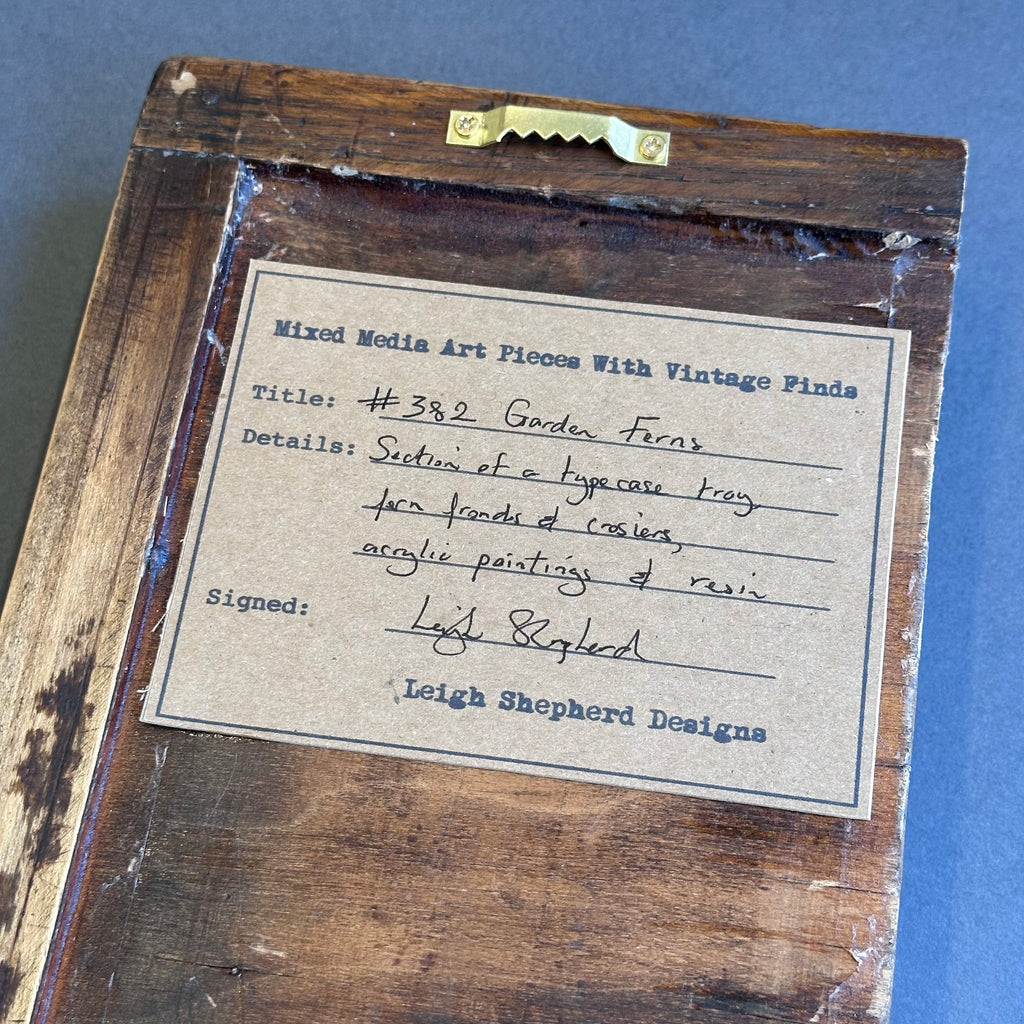 Mixed Media Art Pieces With Vintage Finds
Title: #382 Garden Ferns
Details: Section of a typecase tray,
fern fronds & crosiers,
acrylic paintings & resin
Signed: Leigh Shepherd
Leigh Shepherd Designs